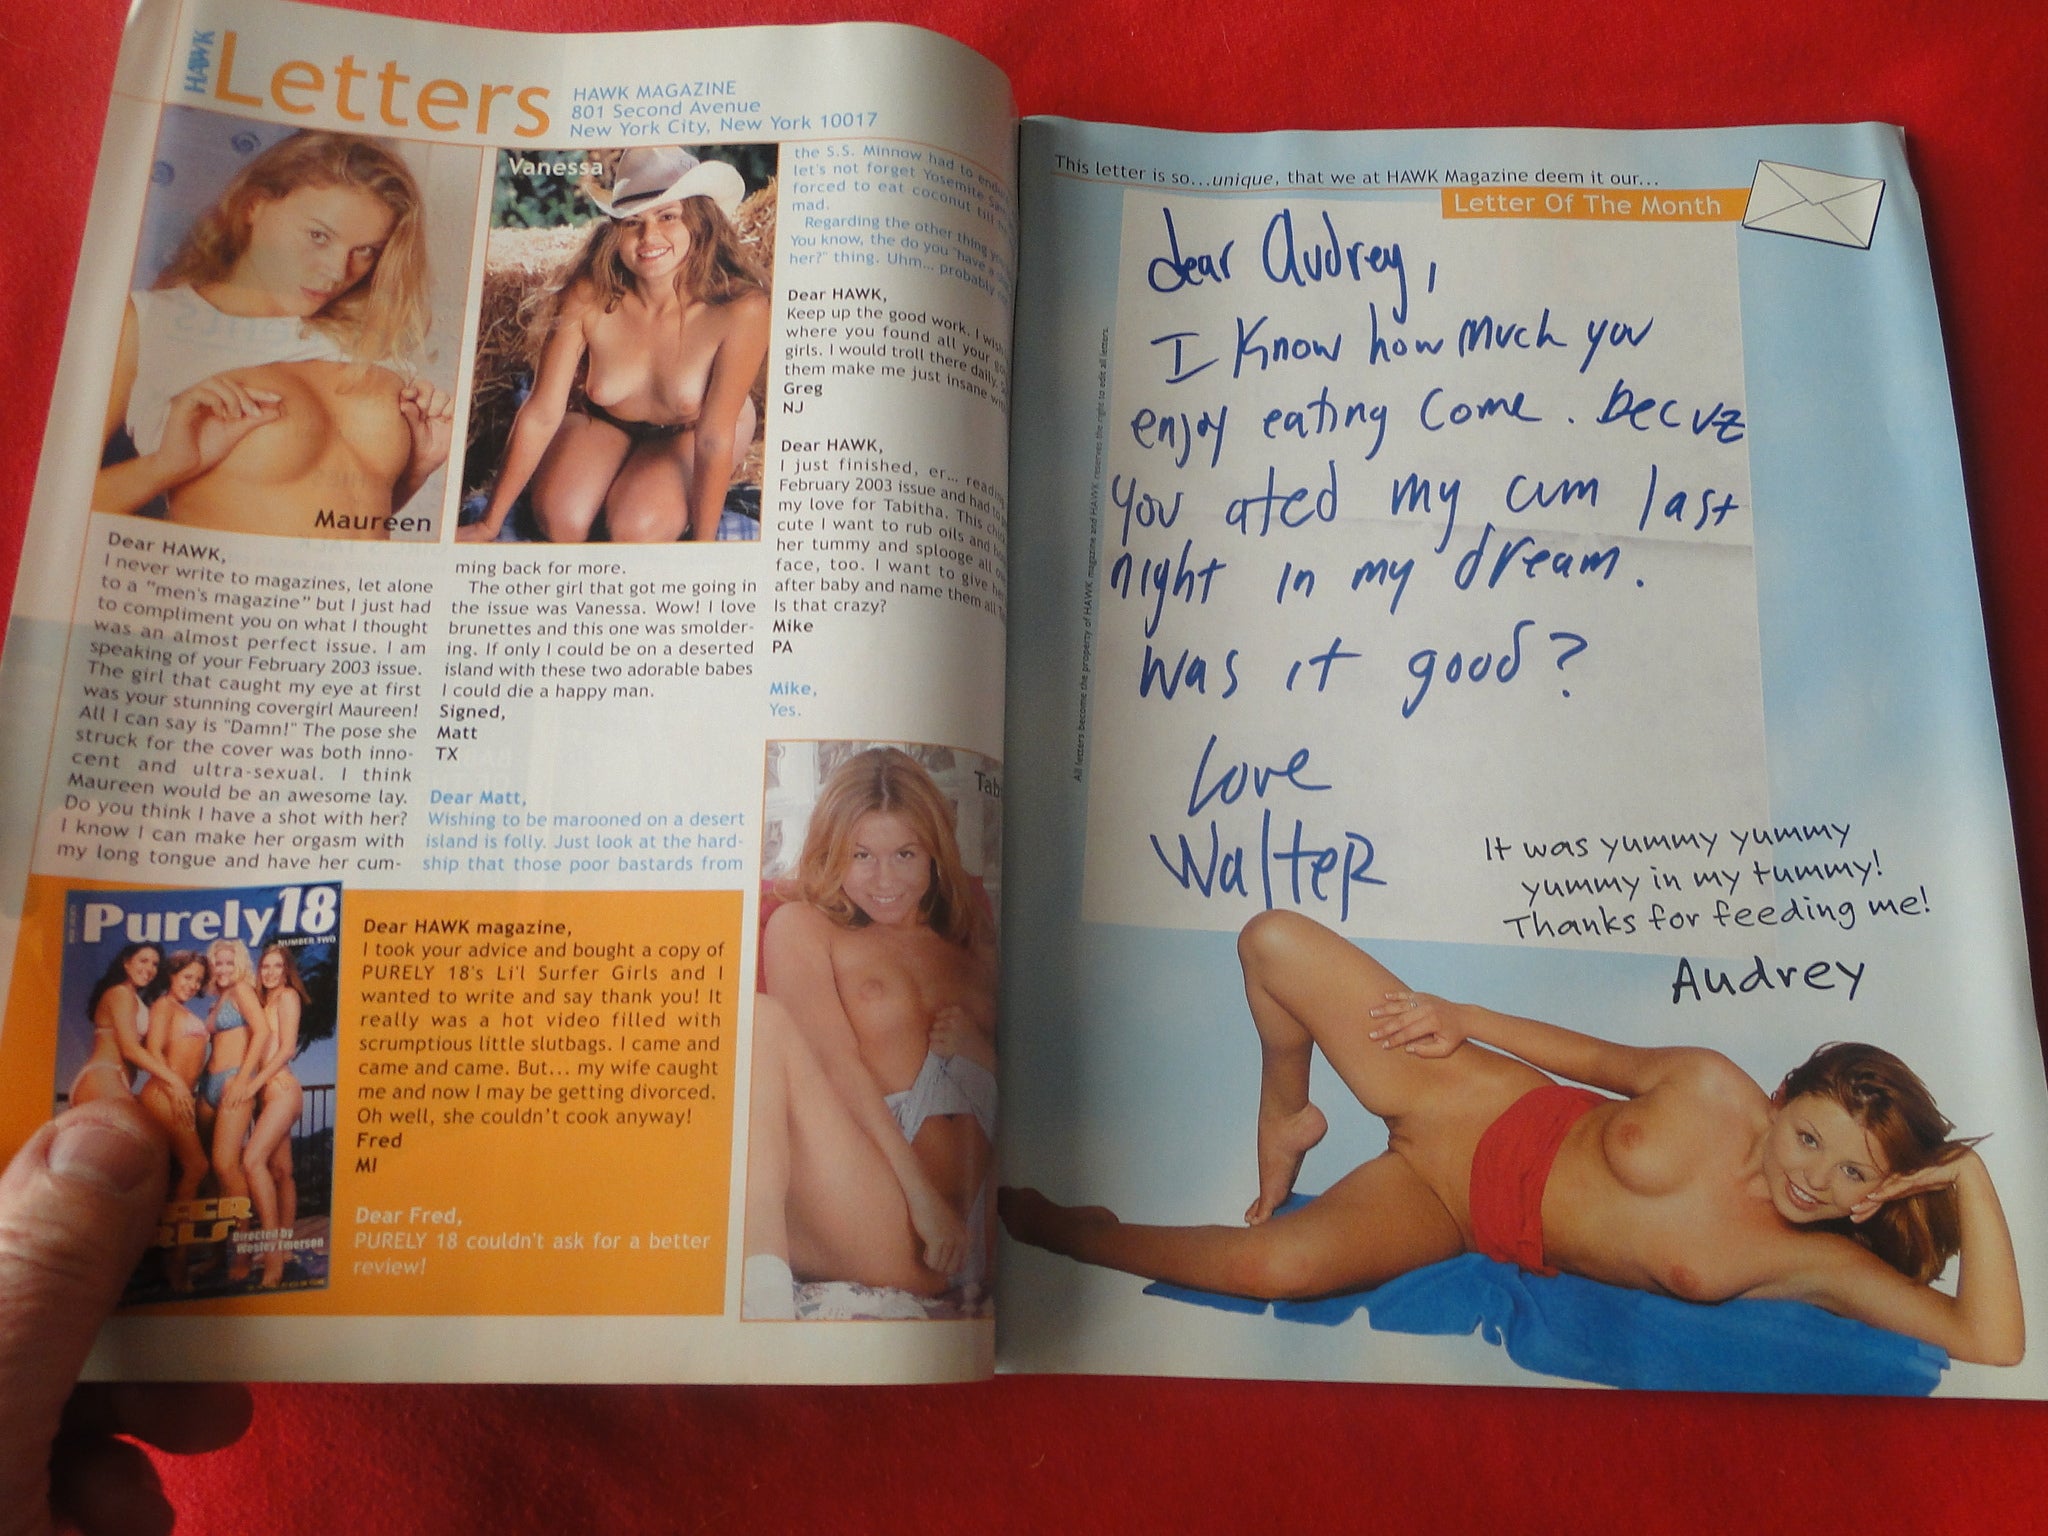 HAWK
Letters
HAWK MAGAZINE
801 Second Avenue
New York City, New York 10017
Maureen
Vanessa
Dear HAWK,
I never write to magazines, let alone
to a "men's magazine" but I just had
to compliment you on what I thought
was an almost perfect issue. I am
speaking of your February 2003 issue.
The girl that caught my eye at first
was your stunning covergirl Maureen!
All I can say is "Damn!" The pose she
struck for the cover was both inno-
cent and ultra-sexual. I think
Maureen would be an awesome lay.
Do you think I have a shot with her?
I know I can make her orgasm with
my long tongue and have her cum-
ming back for more.
The other girl that got me going in
the issue was Vanessa. Wow! I love
brunettes and this one was smolder-
ing. If only I could be on a deserted
island with these two adorable babes
I could die a happy man.
Signed,
Matt
TX
Dear Matt,
Wishing to be marooned on a desert
island is folly. Just look at the hard-
ship that those poor bastards from
the S.S. Minnow had to
let's not forget Yosemite Sam
forced to eat coconut till
mad.
Regarding the other thing
You know, the do you "have a
her?" thing. Uhm... probably
Dear HAWK,
Keep up the good work. I wish
where you found all your
girls. I would troll there daily.
them make me just insane
Greg
NJ
Dear HAWK,
I just finished, er... reading
February 2003 issue and had to
my love for Tabitha. This
cute I want to rub oils and
her tummy and splooge all
face, too. I want to give her
after baby and name them all
Is that crazy?
Mike
PA
Mike,
Yes.
Tab
Purely 18
NUMBER TWO
Directed by
Wesley Emerson
Dear HAWK magazine,
I took your advice and bought a copy of
PURELY 18's Li'l Surfer Girls and I
wanted to write and say thank you! It
really was a hot video filled with
scrumptious little slutbags. I came and
came and came. But... my wife caught
me and now I may be getting divorced.
Oh well, she couldn't cook anyway!
Fred
MI
Dear Fred,
PURELY 18 couldn't ask for a better
review!
This letter is so...unique, that we at HAWK Magazine deem it our...
Letter Of The Month
All letters become the property of HAWK magazine and HAWK reserves the right to edit all letters.
dear Audrey,
I know how much you
enjoy eating come. becuz
you ated my cum last
night in my dream.
was it good?
Love
Walter
It was yummy yummy
yummy in my tummy!
Thanks for feeding me!
Audrey